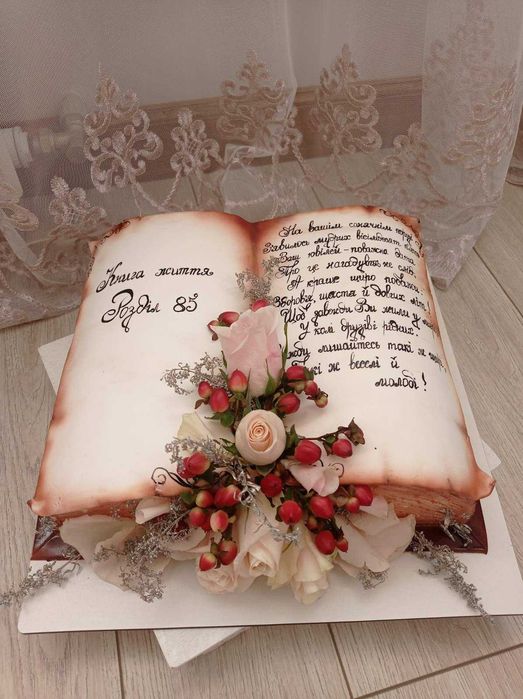 Книга життя
Розділ 85
На вашім сонячнім
З'явилось мудрих вісімдесят
Ваш ювілей - поважна дата
Про це нагадувать не слід.
А краще щиро побажаєм
Здоров'я, щастя й довгих літ!
Щоб завжди Ви жили у
У колі друзів і рідних.
лишайтесь такі ж
Такі ж веселі й
молоді!